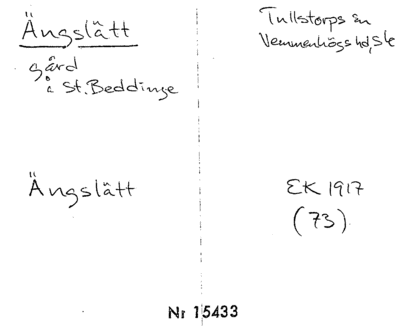 Ängslätt
gård
å St. Beddinge
Tullstorps sn
Vemmenhögs hd, Sk
Ängslätt
EK 1917
(73)
Nr 15433